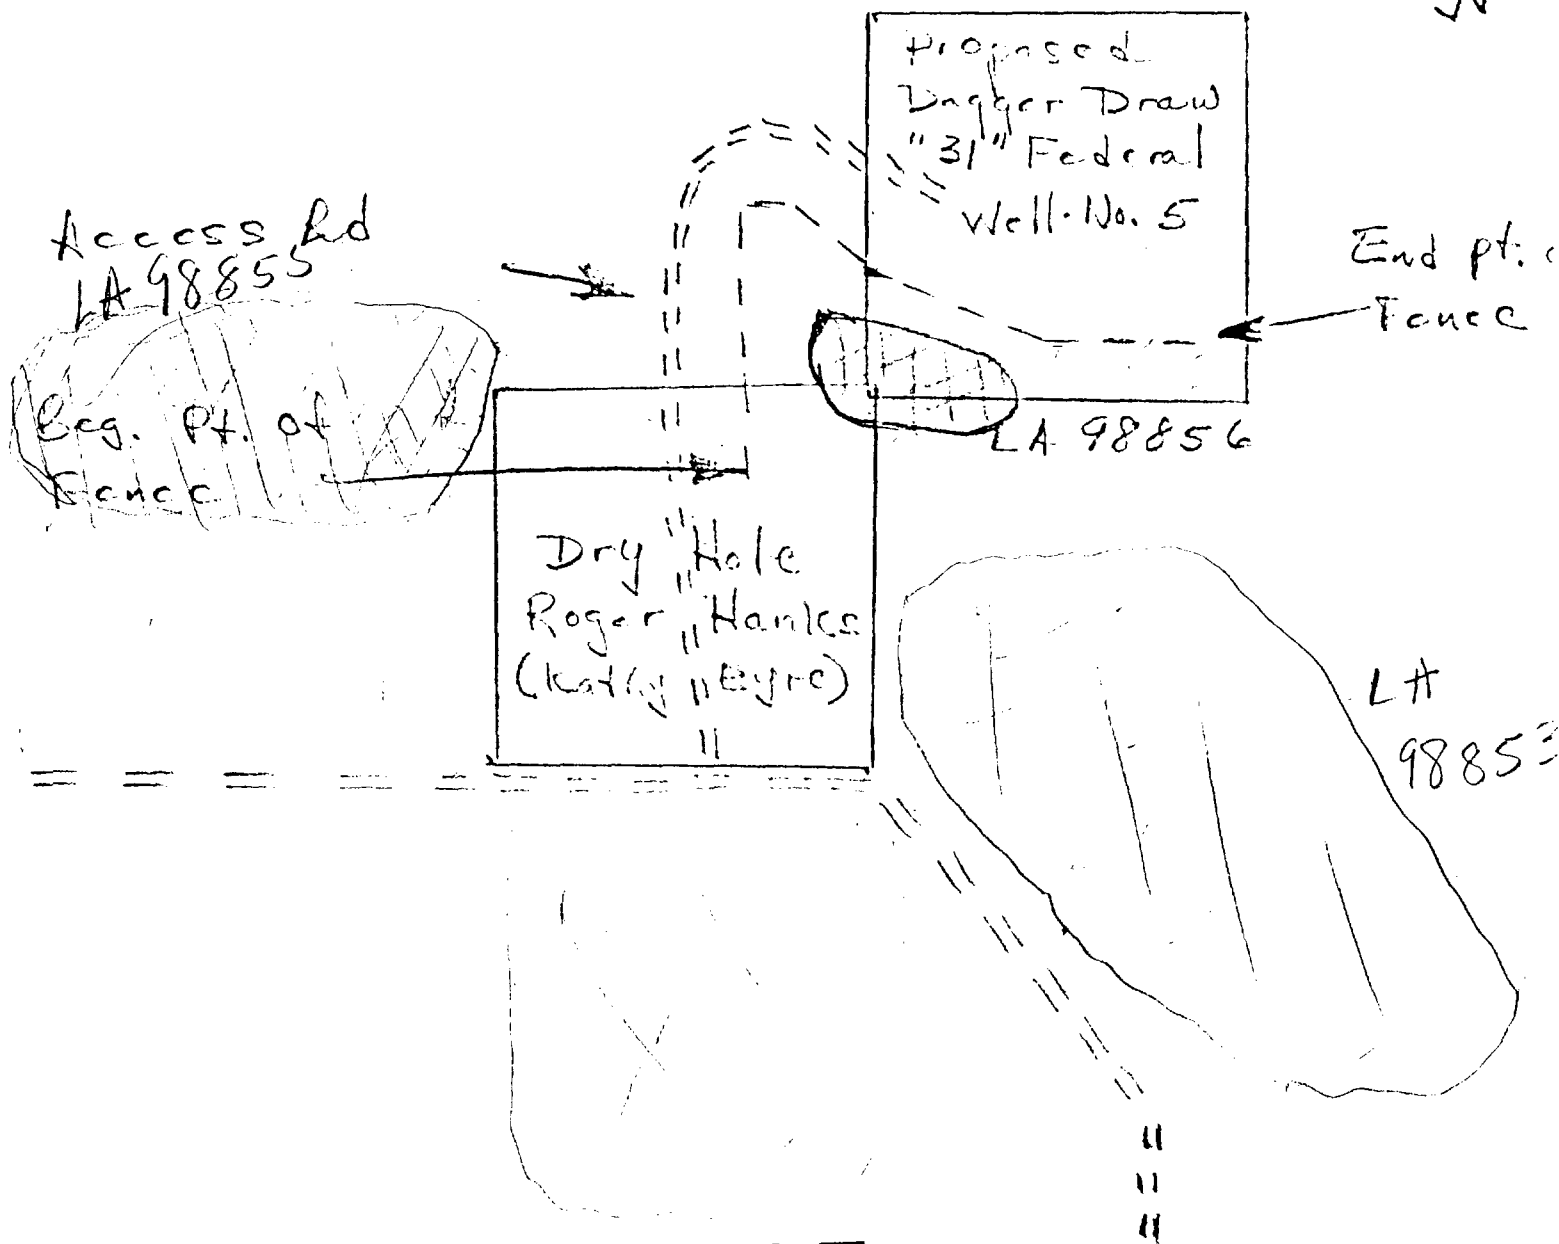 N
Proposed
Dagger Draw
"31" Federal
Well No. 5
Access Rd
LA 98855
End pt.
Fence
Beg. Pt. of
Fence
LA 98856
Dry Hole
Roger Hanks
(Kathy Eyre)
LA
9885